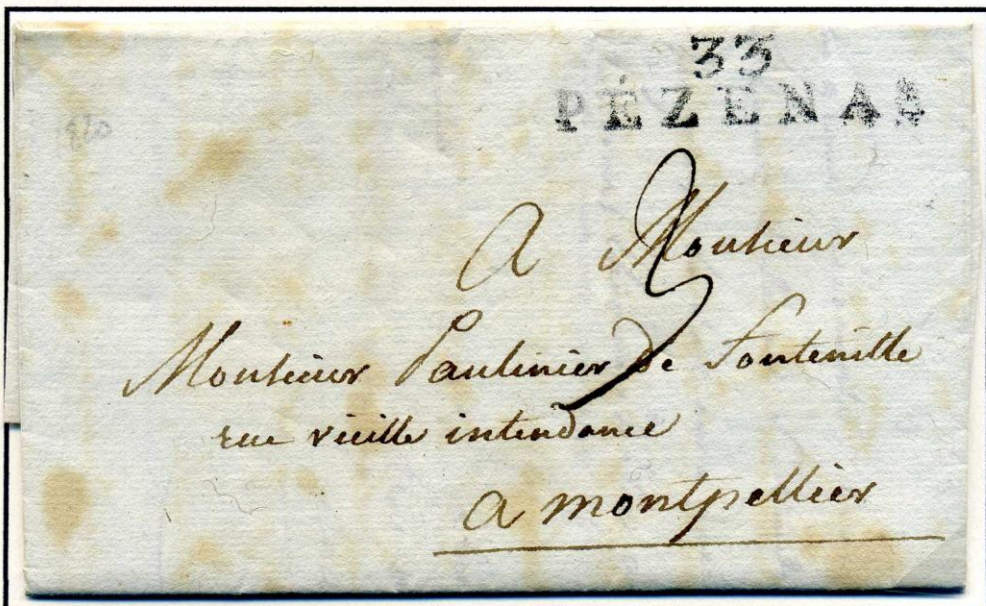 33
PÉZENAS
3
A Monsieur
Monsieur Paulinier De Fonteville
rue vieille intendance
a montpellier